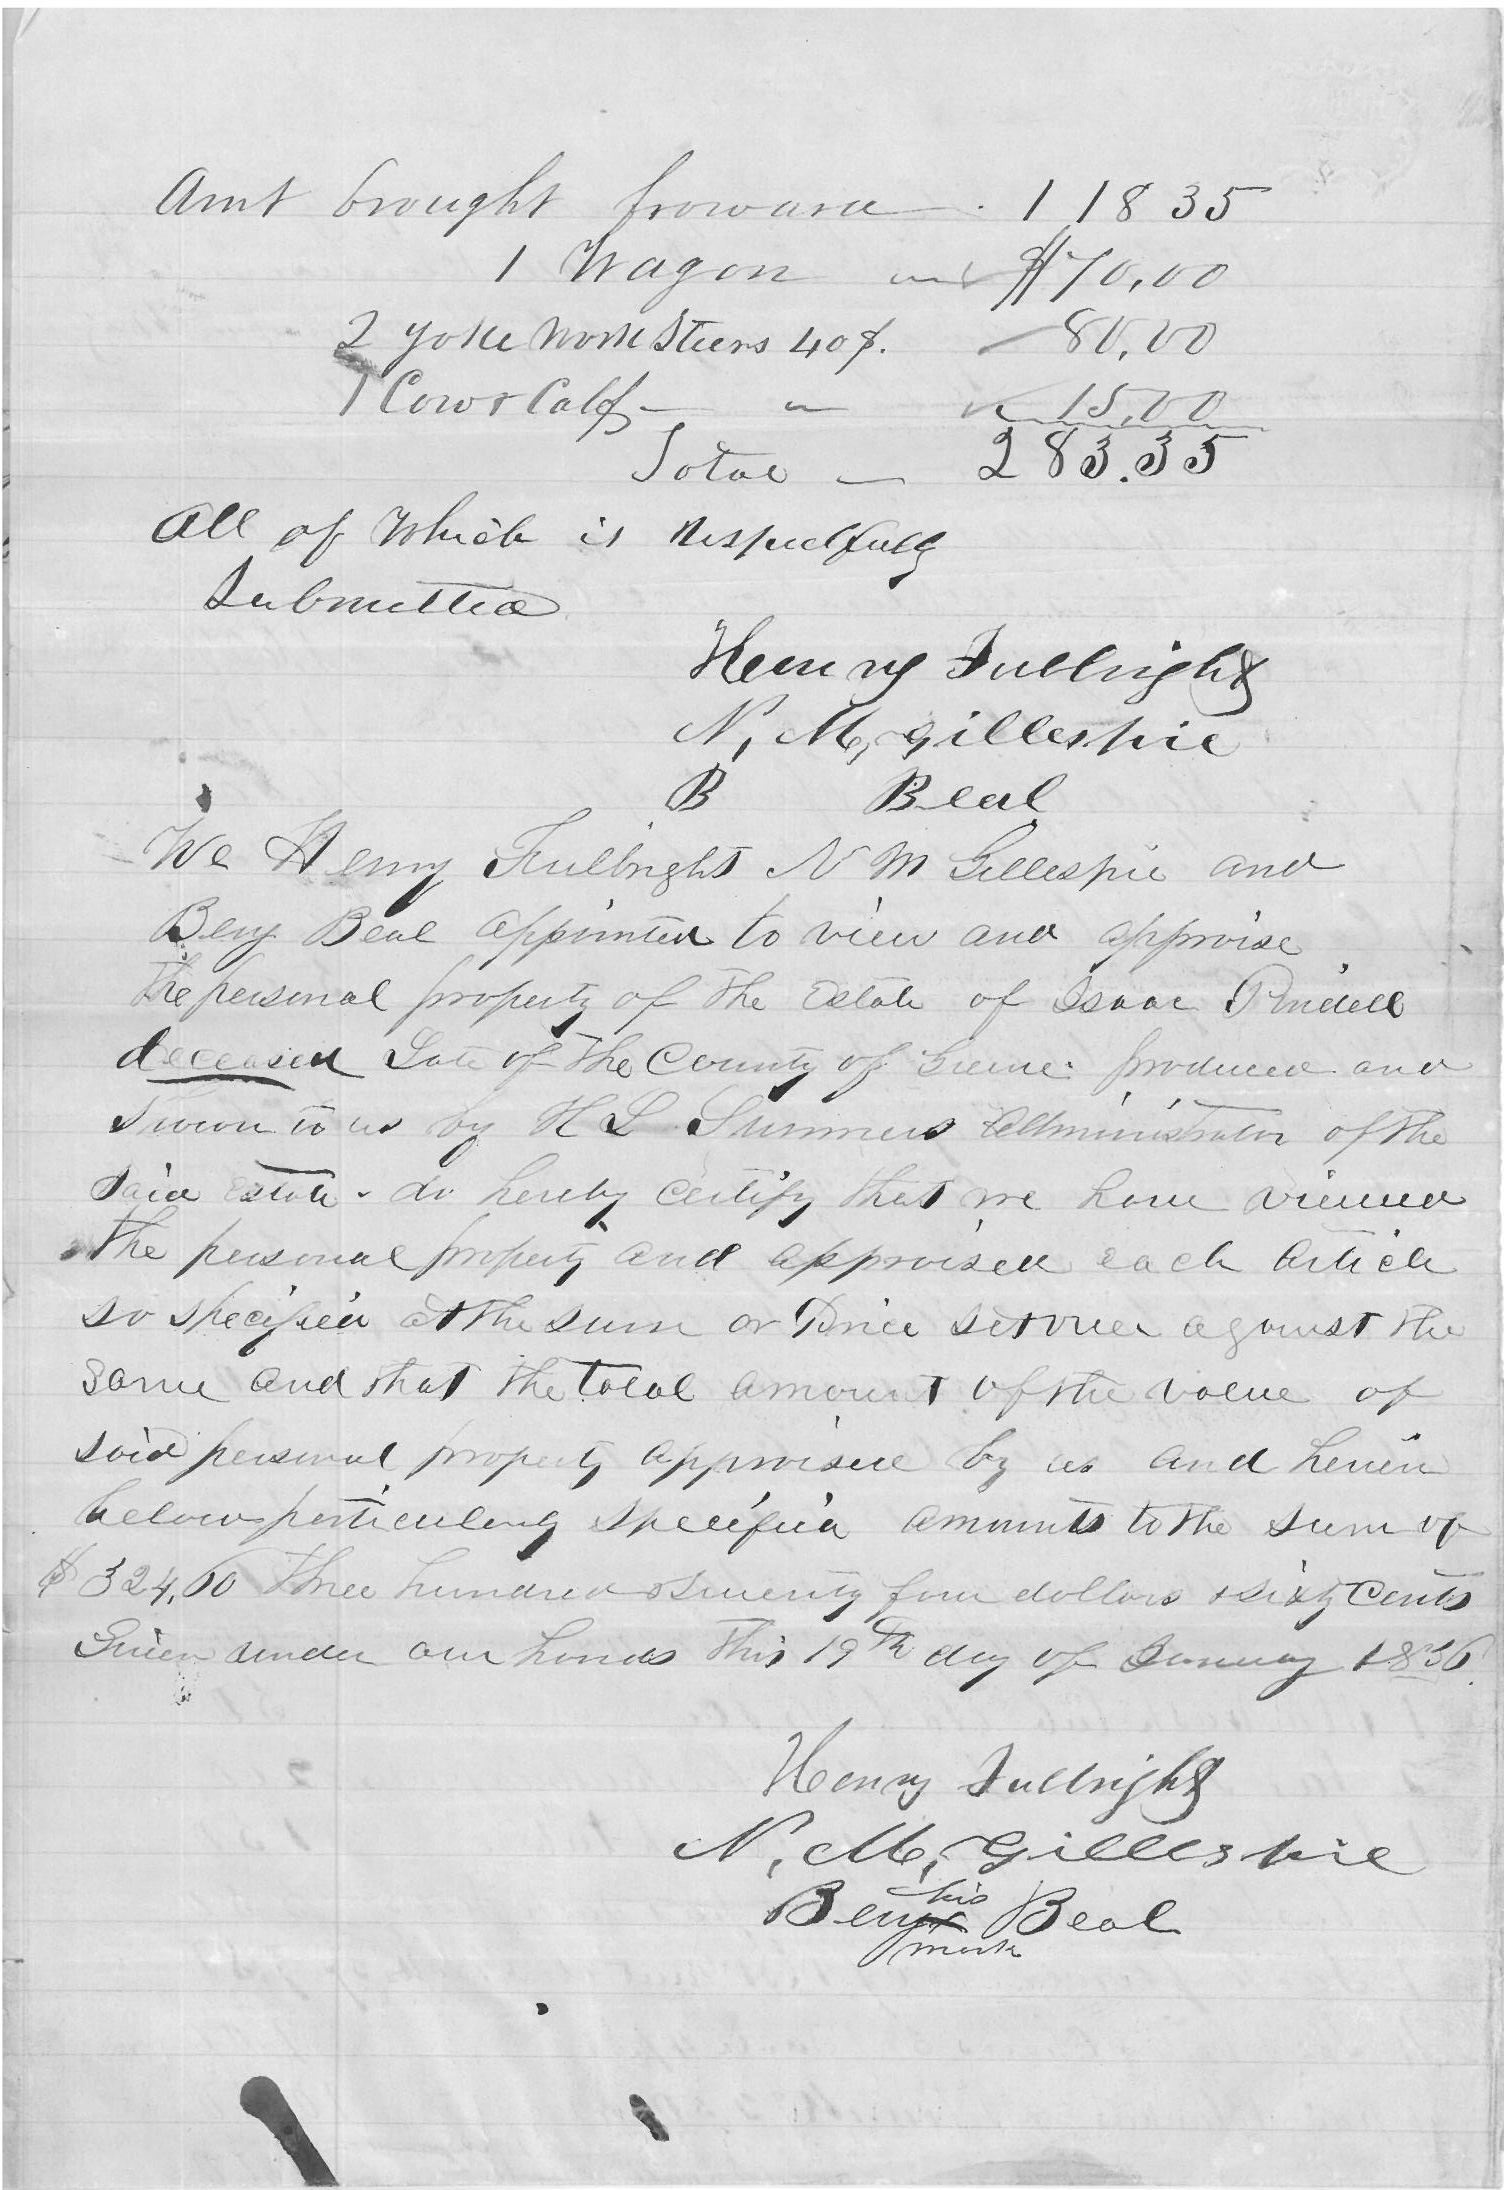 Amt brought froward . 118 35
1 Wagon $70,00
2 yoke work Steers 40$. 80,00
1 Cow & Calf — — 15,00
Total — 283.35
All of Which is respectfully
Submitted
Henry Fulbright
N, M, gillespie
B Beal
We Henry Fulbright N M Gillespie and
Benj Beal appointed to view and appraise
the personal property of the Estate of Isaac
deceased Late of the County of Greene produced and
shown to us by H L Summers Administrator of the
said Estate - do hereby certify that we have viewed
the personal property and appraised each article
so specified at the sum or Price set over against the
same and that the total amount of the value of
said personal property appraised by us and herein
below perticularly specified amounts to the sum of
$324,60 Three hundred & twenty four dollars & sixty Cents
Given under our hands this 19th day of January
Henry Fulbright
N, M, Gillespie
Benj his x mark Beal